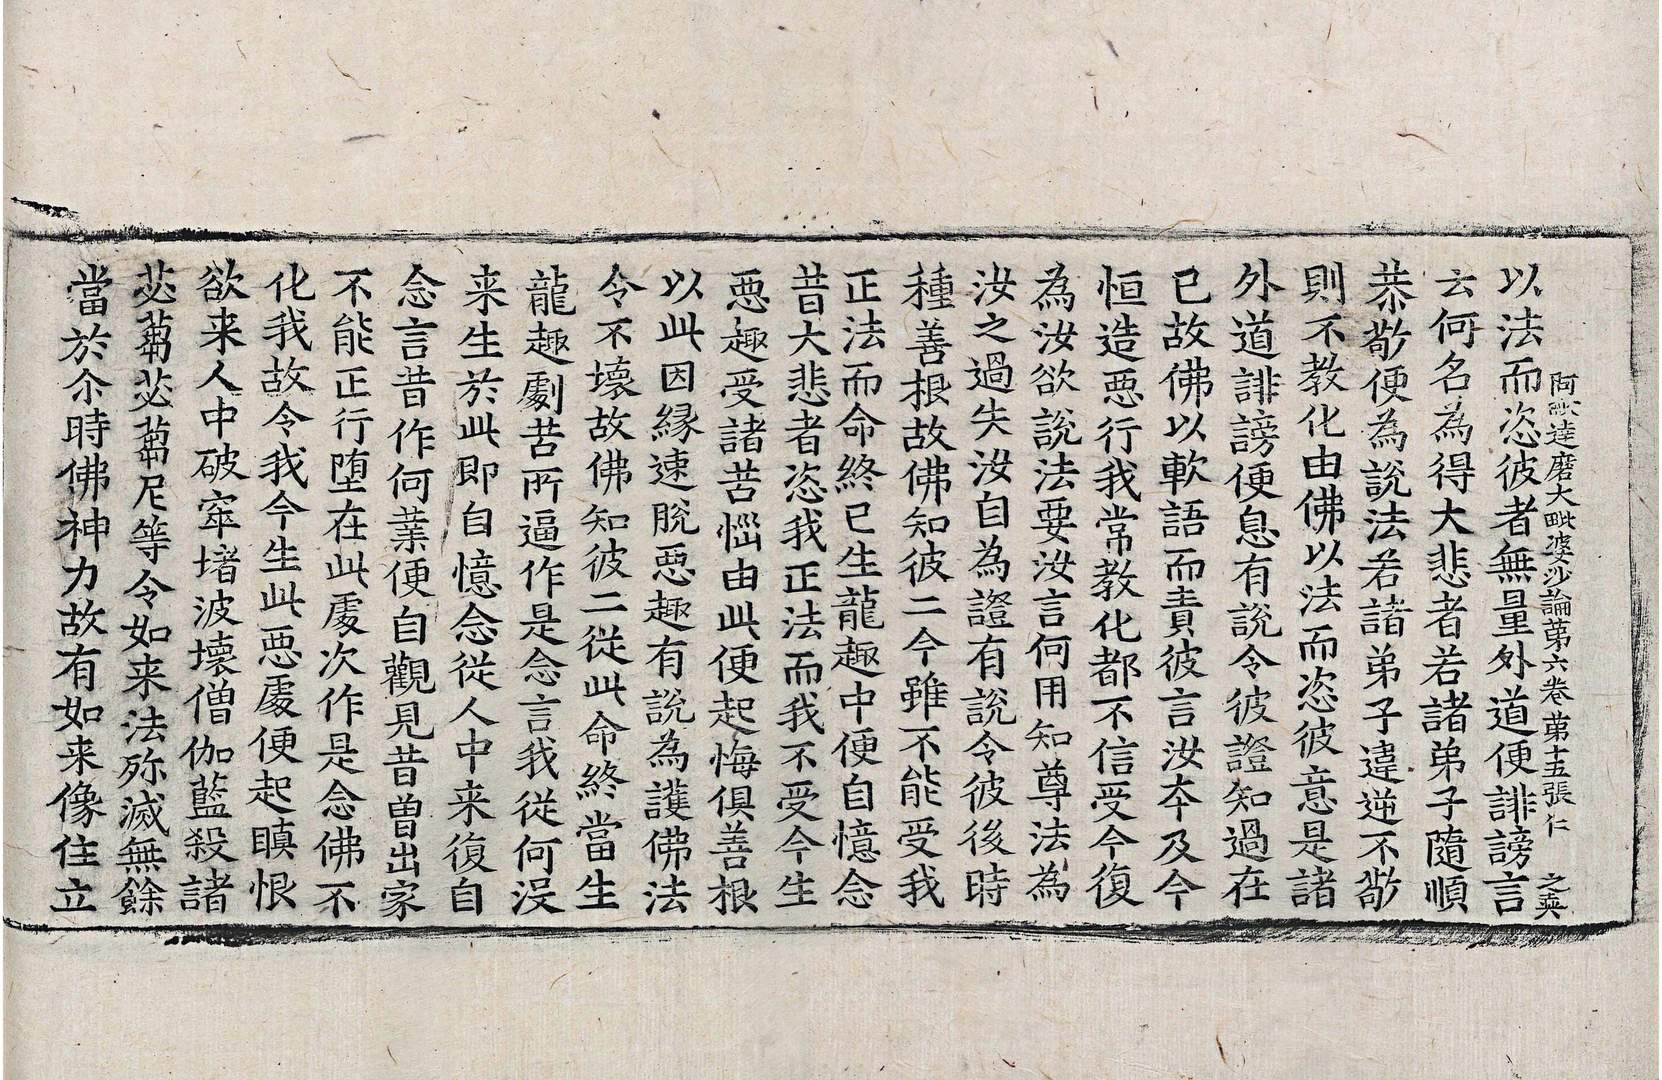 阿毗達磨大毗婆沙論第六卷 第十五張 仁 之奭
以法而恣彼者無量外道便誹謗言
云何名為得大悲者若諸弟子隨順
恭敬便為說法若諸弟子違逆不敬
則不教化由佛以法而恣彼意是諸
外道誹謗便息有說令彼證知過在
已故佛以軟語而責彼言汝夲及今
恒造惡行我常教化都不信受今復
為汝欲說法要汝言何用知尊法為
汝之過失汝自為證有說令彼後時
種善根故佛知彼二今雖不能受我
正法而命終已生龍趣中便自憶念
昔大悲者恣我正法而我不受今生
惡趣受諸苦惱由此便起悔俱善根
以此因緣速脫惡趣有說為護佛法
令不壞故佛知彼二從此命終當生
龍趣劇苦所逼作是念言我從何沒
来生於此即自憶念從人中来復自
念言昔作何業便自觀見昔曽出家
不能正行墮在此處次作是念佛不
化我故令我今生此惡處便起瞋恨
欲来人中破窣堵波壞僧伽藍殺諸
苾蒭苾蒭尼等令如来法殄滅無餘
當於尒時佛神力故有如来像住立